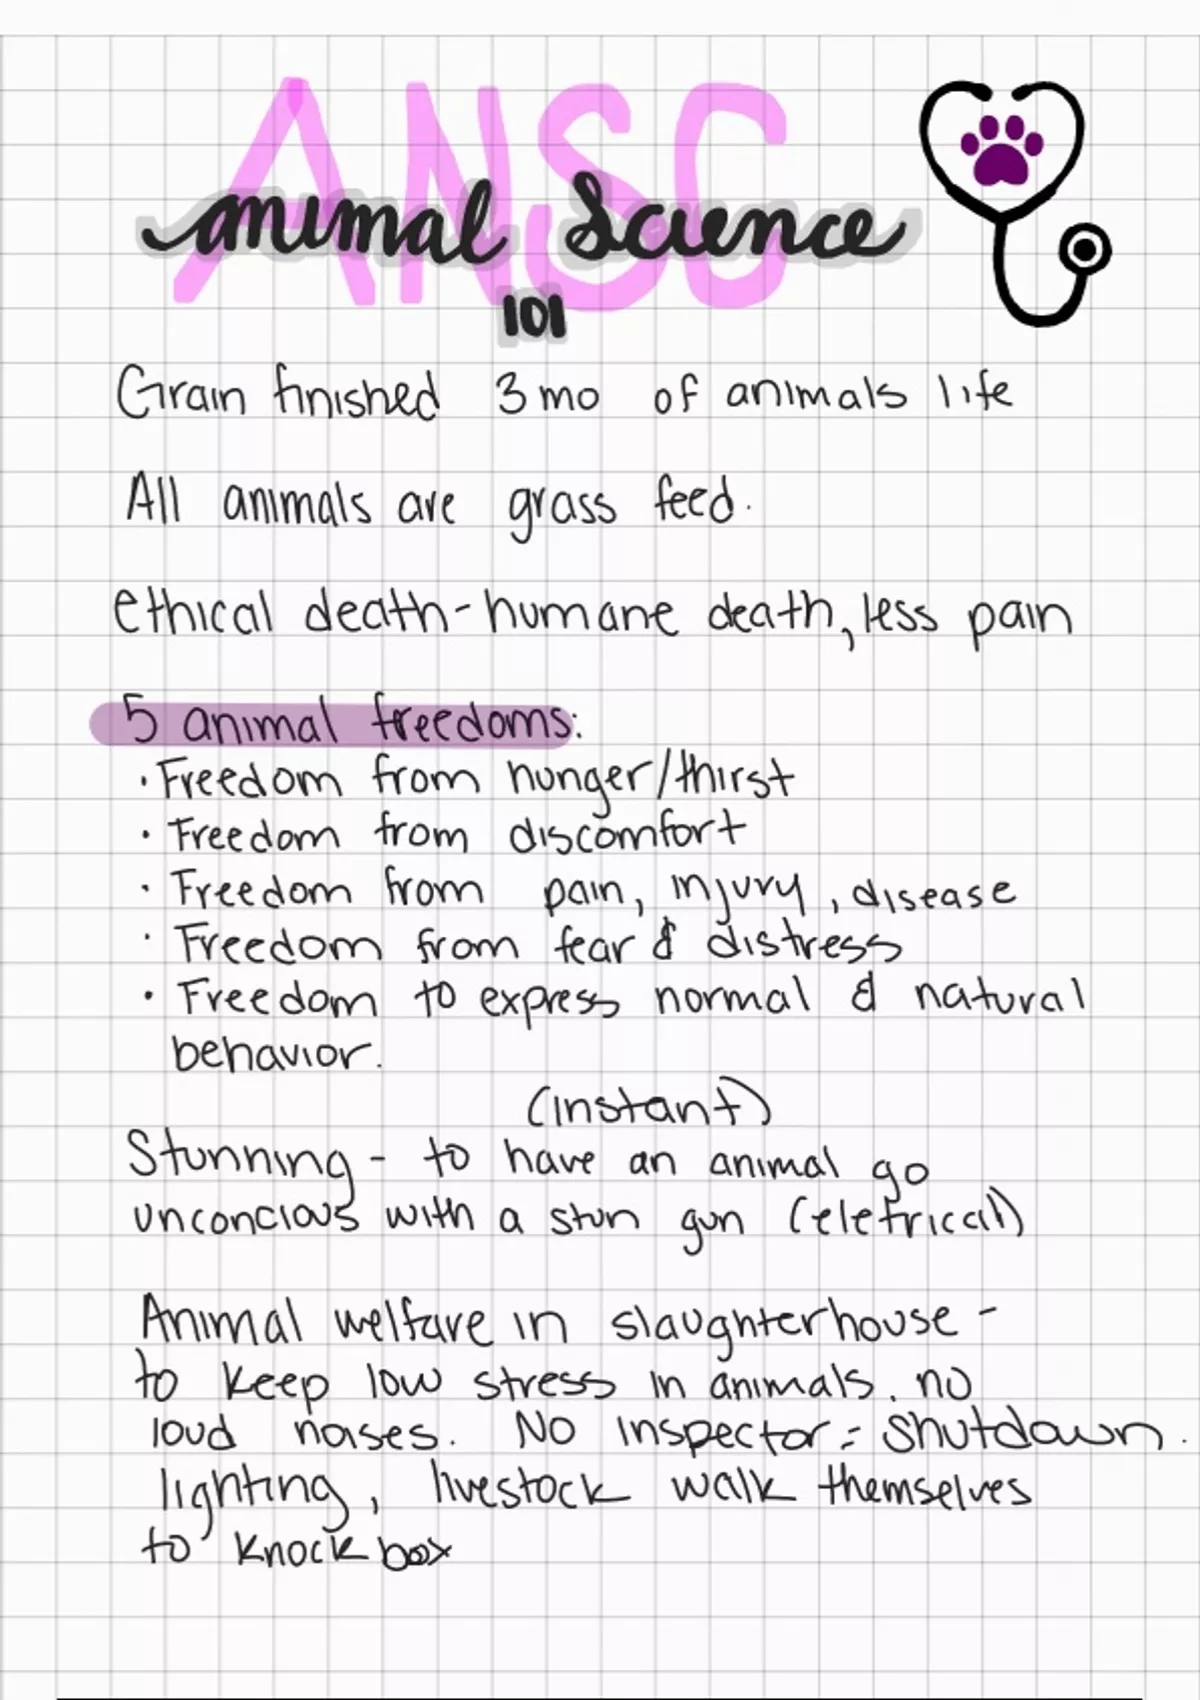 ANSC
Animal Science
101
Grain finished 3 mo of animals life
All animals are grass feed.
ethical death - humane death, less pain
5 animal freedoms:
· Freedom from hunger/thirst
· Freedom from discomfort
· Freedom from pain, injury, disease
· Freedom from fear & distress
· Freedom to express normal & natural
behavior.
(instant)
Stunning - to have an animal go
unconcious with a stun gun (eletrical)
Animal welfare in slaughterhouse -
to keep low stress in animals. no
loud noises. No inspector = shutdown.
lighting, livestock walk themselves
to knock box